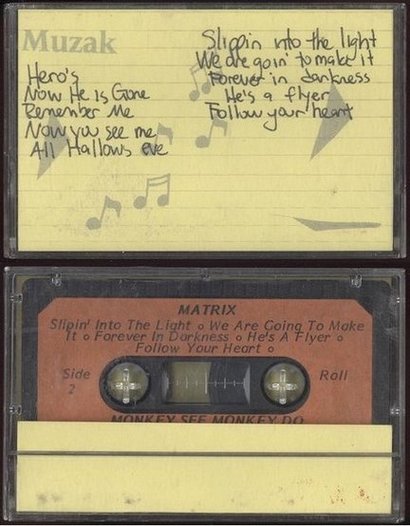 Muzak
Hero's
Now He is Gone
Remember Me
Now you see me
All Hallows eve
Slippin into the light
We are goin' to make it
Forever in darkness
He's a flyer
Follow your heart
MATRIX
Slipin' Into The Light o We Are Going To Make
It o Forever In Darkness o He's A Flyer o
Follow Your Heart o
Side
2
Roll
MONKEY SEE MONKEY DO